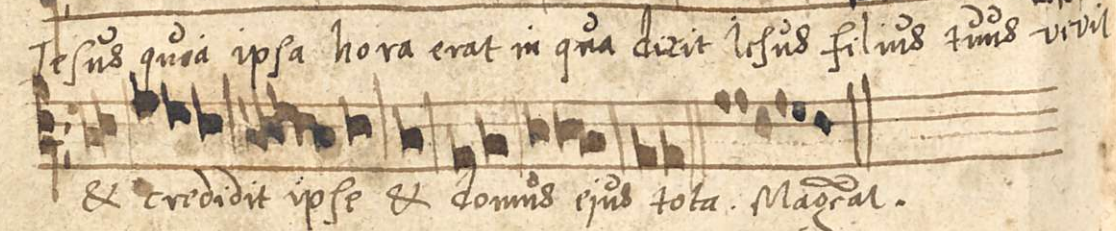 Jesus quia ipsa hora erat in qua dixit Iesus filius tuus vivit
& credidit ipse & domus ejus tota. Magcat.